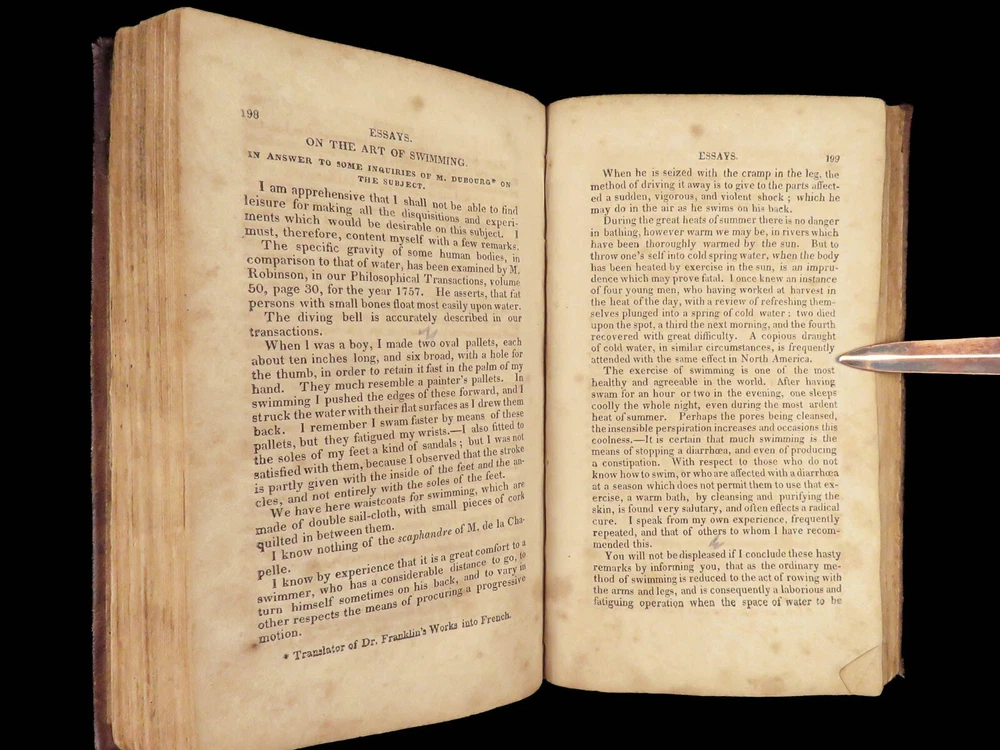 198
ESSAYS.
ON THE ART OF SWIMMING.
IN ANSWER TO SOME INQUIRIES OF M. DUBOURG* ON
THE SUBJECT.
I am apprehensive that I shall not be able to find
leisure for making all the disquisitions and experi-
ments which would be desirable on this subject. I
must, therefore, content myself with a few remarks.
The specific gravity of some human bodies, in
comparison to that of water, has been examined by M.
Robinson, in our Philosophical Transactions, volume
50, page 30, for the year 1757. He asserts, that fat
persons with small bones float most easily upon water.
The diving bell is accurately described in our
transactions.
When I was a boy, I made two oval pallets, each
about ten inches long, and six broad, with a hole for
the thumb, in order to retain it fast in the palm of my
hand. They much resemble a painter's pallets. In
swimming I pushed the edges of these forward, and I
struck the water with their flat surfaces as I drew them
back. I remember I swam faster by means of these
pallets, but they fatigued my wrists.—I also fitted to
the soles of my feet a kind of sandals; but I was not
satisfied with them, because I observed that the stroke
is partly given with the inside of the feet and the an-
cles, and not entirely with the soles of the feet.
We have here waistcoats for swimming, which are
made of double sail-cloth, with small pieces of cork
quilted in between them.
I know nothing of the scaphandre of M. de la Cha-
pelle.
I know by experience that it is a great comfort to a
swimmer, who has a considerable distance to go, to
turn himself sometimes on his back, and to vary in
other respects the means of procuring a progressive
motion.
* Translator of Dr. Franklin's Works into French.
ESSAYS. 199
When he is seized with the cramp in the leg, the
method of driving it away is to give to the parts affect-
ed a sudden, vigorous, and violent shock; which he
may do in the air as he swims on his back.
During the great heats of summer there is no danger
in bathing, however warm we may be, in rivers which
have been thoroughly warmed by the sun. But to
throw one's self into cold spring water, when the body
has been heated by exercise in the sun, is an impru-
dence which may prove fatal. I once knew an instance
of four young men, who having worked at harvest in
the heat of the day, with a review of refreshing them-
selves plunged into a spring of cold water: two died
upon the spot, a third the next morning, and the fourth
recovered with great difficulty. A copious draught
of cold water, in similar circumstances, is frequently
attended with the same effect in North America.
The exercise of swimming is one of the most
healthy and agreeable in the world. After having
swam for an hour or two in the evening, one sleeps
coolly the whole night, even during the most ardent
heat of summer. Perhaps the pores being cleansed,
the insensible perspiration increases and occasions this
coolness.—It is certain that much swimming is the
means of stopping a diarrhœa, and even of producing
a constipation. With respect to those who do not
know how to swim, or who are affected with a diarrhœa
at a season which does not permit them to use that ex-
ercise, a warm bath, by cleansing and purifying the
skin, is found very salutary, and often effects a radical
cure. I speak from my own experience, frequently
repeated, and that of others to whom I have recom-
mended this.
You will not be displeased if I conclude these hasty
remarks by informing you, that as the ordinary me-
thod of swimming is reduced to the act of rowing with
the arms and legs, and is consequently a laborious and
fatiguing operation when the space of water to be